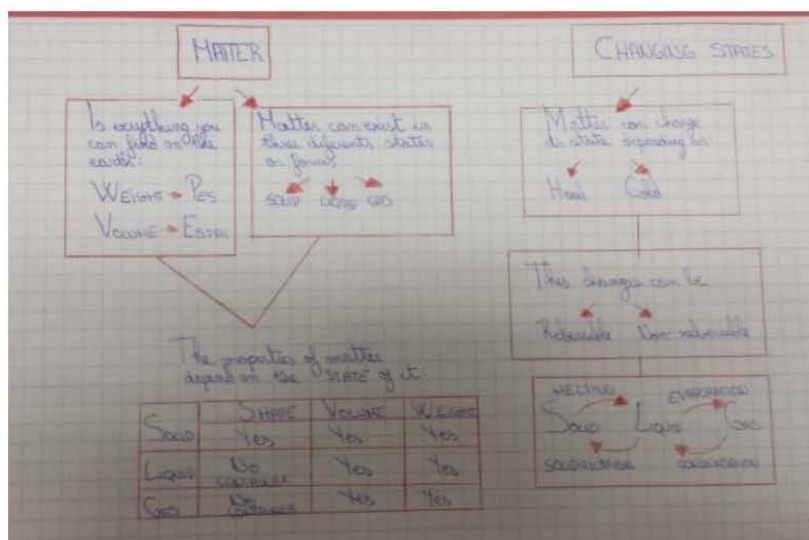 MATTER
Is everything you
can find on the
earth:
WEIGHT → PES
VOLUME → ESPAI
Matter can exist in
three diferents states
or forms
SOLID LIQUID GAS
The properties of matter
depend on the STATE of it:
SHAPE VOLUME WEIGHT
SOLID YES YES YES
LIQUID NO YES YES
CONTAINER
GAS NO YES YES
CONTAINER
CHANGING STATES
Matter can change
it state depending on:
Cold
This changes can be
MELTING EVAPORATION
SOLID LIQUID GAS
SOLIDIFICATION CONDENSATION